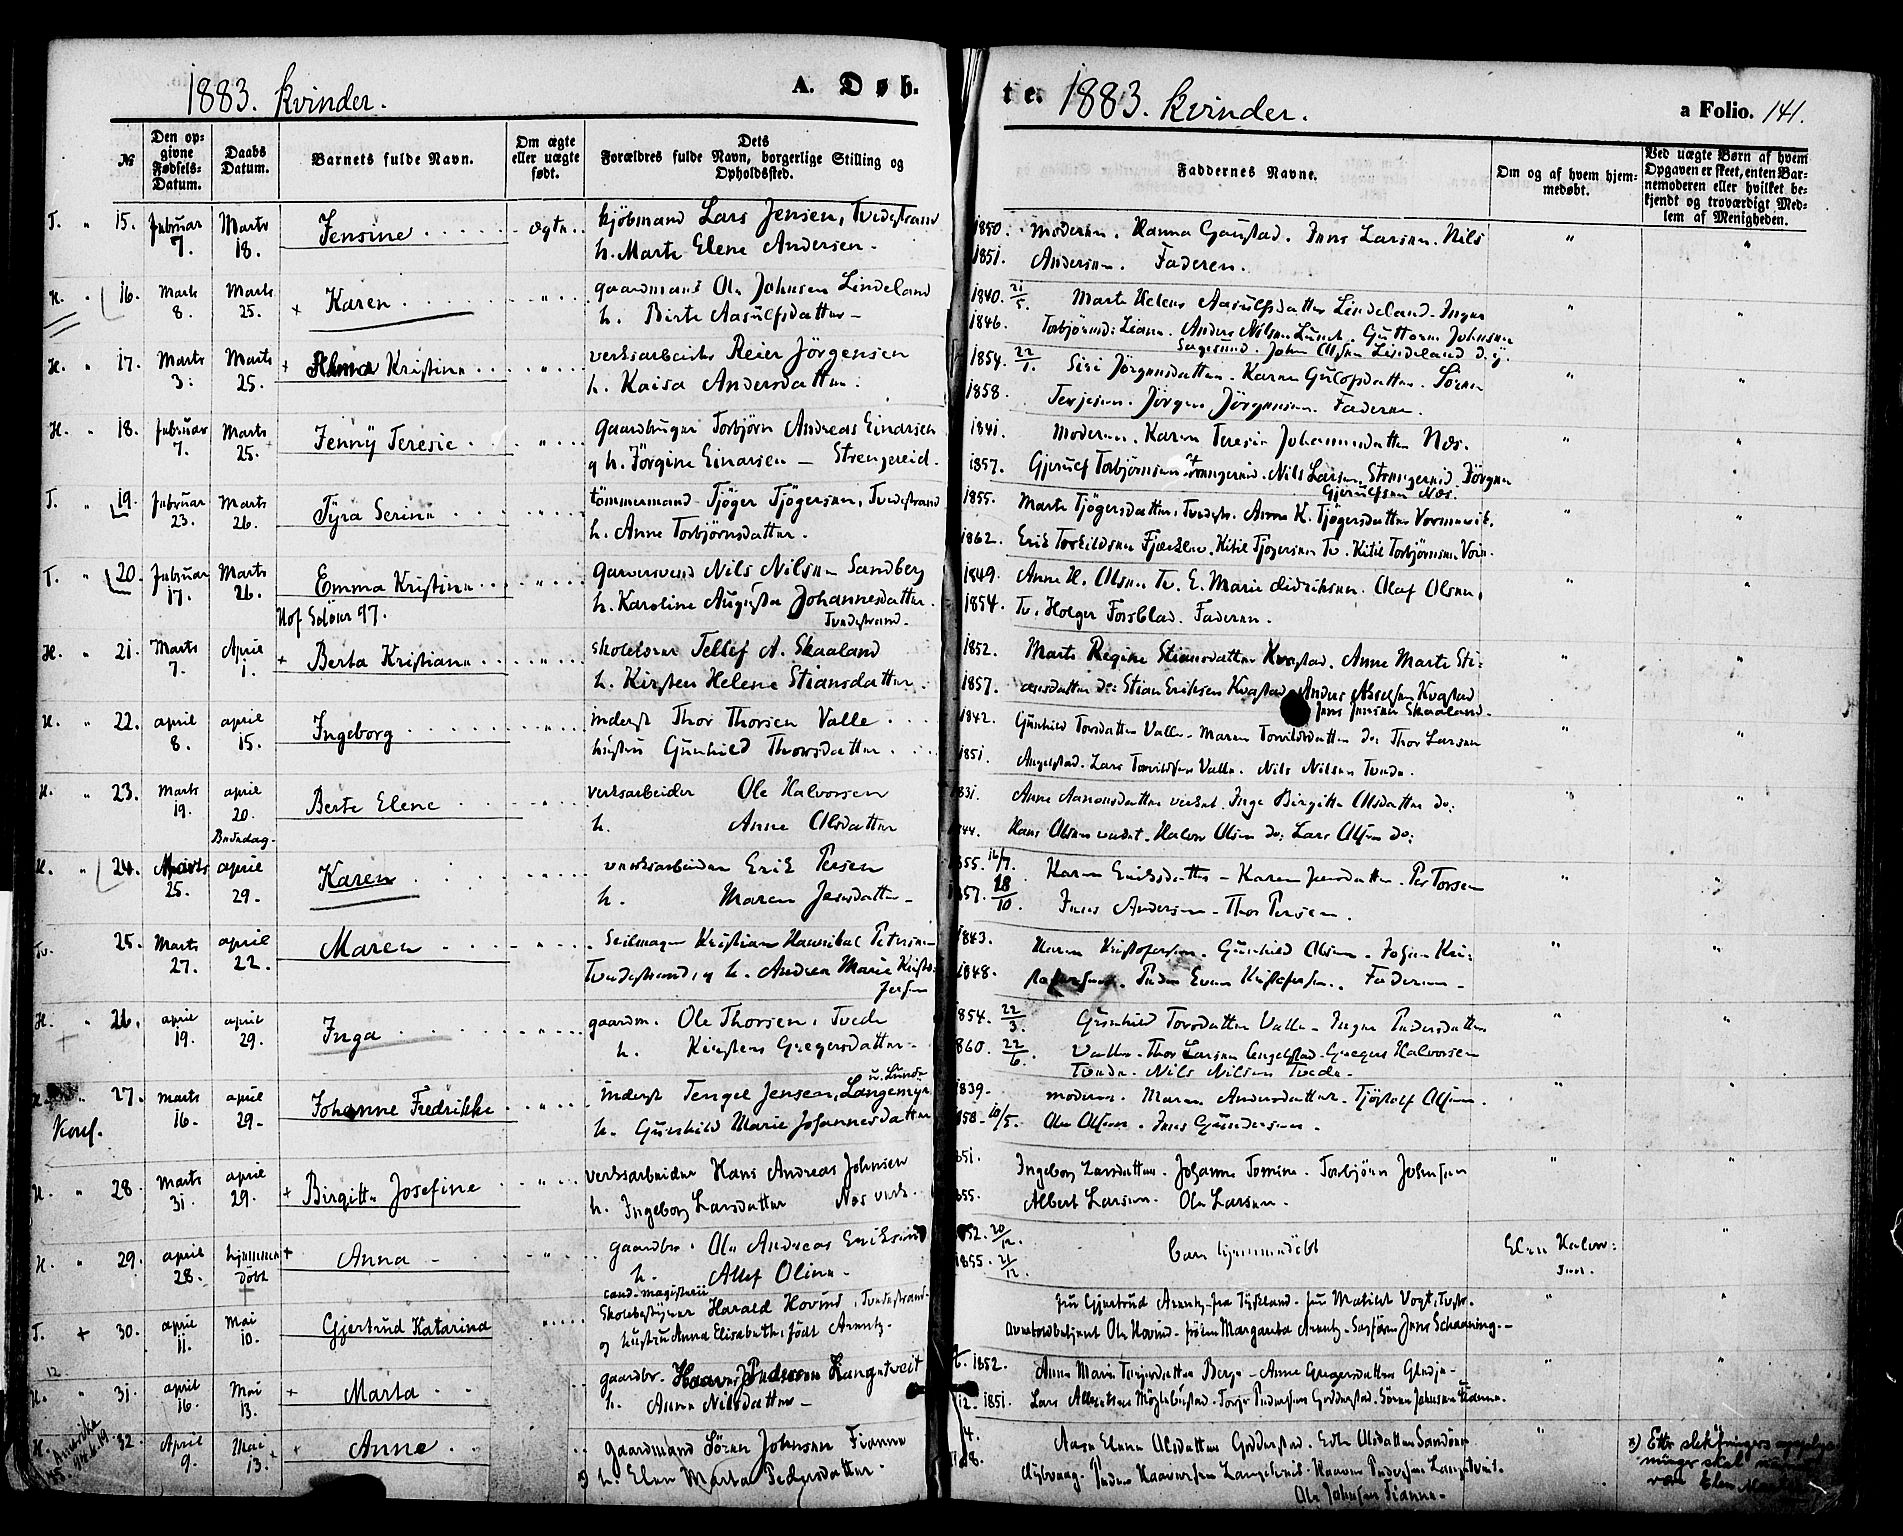 1883. Kvinder.
A. Døb-
№
Den op-
givne
Fødsels-
Datum.
Daabs
Datum.
Barnets fulde Navn.
Om ægte
eller uægte
født.
Dets
Forældres fulde Navn, borgerlige Stilling og
Opholdssted.
T. " 15. Februar 7. Marts 18. Jensine ægte
Kjöbmand Lars Jensen, Tvedestrand
h. Marte Elene Andersen.
H. " 16. Marts 8. Marts 25. + Karen "
gaardmand Ole Johnsen Lindeland
h. Birte Aasulfsdatter
H. " 17. Marts 3. Marts 25. + Kristine "
verksarbeider Reier Jörgensen
h. Kaisa Andersdatter.
H. " 18. Februar 7. Marts 25. Jenny Teresie "
Gaardbruger Torbjörn Andreas Einarsen
og h. Jörgine Einarsen – Strengereid.
T. " 19. Februar 23. Marts 26. Tyra Serine "
tömmermand Tjöger Tjögersen, Tvedestrand
h. Anne Torbjörnsdatter.
T. " 20. Februar 17. Marts 26. Emma Kristine "
Garversvend Nils Nilsen Sandberg
Hof Solöer 97.
h. Karoline Augusta Johannesdatter.
Tvedestrand.
H. " 21. Marts 7. April 1. + Berta Kristiane "
skolelærer Tellef A. Skaaland
h. Kirsten Helene Stiansdatter.
H. " 22. april 8. april 15. Ingeborg "
inderst Thor Thorsen Valle
hustru Gunhild Thorsdatter
H. " 23. Marts 19. april 20. Bededag. Berte Elene "
verksarbeider Ole Halvorsen
h. Anne Olsdatter
H. " 24. Marts 25. april 29. Karen "
verksarbeider Erik Persen
h. Maren Jensdatter
Tv. 25. Marts 27. april 22. Maren "
Seilmager Kristian Hannibal Petersen
Tvedestrand, og h. Andrea Marie Kristo-
fersen
H. " 26. april 19. april 29. Inga "
gaardm. Ole Thorsen, Tvede
h. Kirsten Gregersdatter
H. " 27. marts 16. april 29. Johanne Fredrikke "
u. Lunde
inderst Tengel Jensen, Langemyr
Konf.
h. Gunhild Marie Johannesdatter
H. " 28. Marts 31. april 29. + Birgitte Josefine "
verksarbeider Hans Andreas Johnsen
h. Ingeborg Larsdatter Næs verk.
H. " 29. april 28. hjemme døbt + Anna "
gaardbr. Ole Andreas Eriksen
h. Allef Oline
T. + 30. april 11. Mai 10. Gjertrud Katarina "
cand. magisterii
Skolebestyrer Harald Hovind, Tvedestrand
og hustru Anna Elisabeth, født Arentz.
H. 31. april 16. Mai 13. + Marta "
gaardbr. Haaver Pedersen Langetveit
h. Anne Nilsdatter
H. 32. April 9. Mai 13. + Anne
Amerika
gaardmand Sören Johnsen Fianne
h. Elen Marta Pedersdatter.
te. 1883. Kvinder.
a Folio. 141.
Faddernes Navne.
Om og af hvem hjem-
medøbt.
Ved uægte Børn af hvem
Opgaven er skeet, enten Bar-
nemoderen eller hvilket be-
kjendt og troværdigt Med-
lem af Menigheden.
1850. Moderen. Hanna Gaustad. Jens Larsen. Nils
1851. Andersen. Faderen.
1840. 21/5. Marte Helene Aasulfsdatter Lindeland. Inger
1846. Torbjörnsd: Liane. Anders Nilsen Lunde. Guttorm Johnsen
Sagesund. John Olsen Lindeland d. y.
1854. 22/1. Siri Jörgensdatter. Karen Gulofsdatter. Sören
1858. Terjesen. Jörgen Jörgensen. Faderen.
1841. Moderen. Karen Teresie Johannesdatter Næs.
1857. Gjerulf Torbjörnsen Strengereid. Nils Larsen Strengereid. Jörgen
Gjerulfsen Næs.
1855. Marte Tjögersdatter, Tvedestr. Anne K. Tjögersdatter
1862. Erik Torkildsen Fjærkleiv. Kitil Tjögersen Tv. Kitil Torbjörnsen
1849. Anne H. Olsen Tv. E. Marie Didriksen. Olaf Olsen,
1854. Tv. Holger Forsblad. Faderen.
1852. Marte Regine Stiansdatter Kvastad. Anne Marte Sti-
1857. ansdatter do: Stian Eriksen Kvastad. Anders Kvastad
Jens Jensen Skaaland.
1842. Gunhild Torsdatter Valle. Maren do: Thor Larsen
1851. Angelstad. Lars Valle. Nils Nilsen Tvede.
1831. Anne Aanonsdatter verket. Inge Birgitte Olsdatter do:
1844. Hans Olsen verket. Halvor Olsen do: Lars Olsen do:
1855. 16/7. Karen Eriksdatter – Karen Jensdatter. Per Torsen
1857. 18/10. Jens Andersen – Thor Persen.
1843. Maren Kristofersen. Gunhild Olsen. Johan Kri-
1848. stofersen. Peder Even Kristofersen. Faderen
1854. 22/3. Gunhild Torsdatter Valle – Inger Pedersdatter
1860. 22/6. Valle – Thor Larsen Angelstad. Gregers Halvorsen
Tvede. Nils Nilsen Tvede.
1839. moderen. Maren Andersdatter. Tjöstolf Olsen.
1858. 10/5. Ole Olsen. Jens Gundersen.
1851. Ingeborg Larsdatter. Johanne Tomine. Torbjörn Johnsen
1855. Albert Larsen. Ole Larsen.
1852. 20/12. Barn hjemmedöbt Elen Halvor:
1855. 21/12.
Fru Gjertrud Arentz fra Fru Matilde Vogt, Tvstr.
Ole Hovind – fröken Margareta Arentz – Jens Schanning.
1852. Anne Marie Terjesdatter Berge – Anne Gregersdatter Gledje
12. 1851. Lars Albretsen Goderstad. Sören Johnsen Fianne.
Aase Elene Olsdatter Godderstad. Edle Olsdatter Sandönes
Dybvaag. Peder Haaversen Langetveit. Haaver Pedersen Langetveit.
Ole Johnsen Fianne
x) Efter slektninges
skal
være Elen